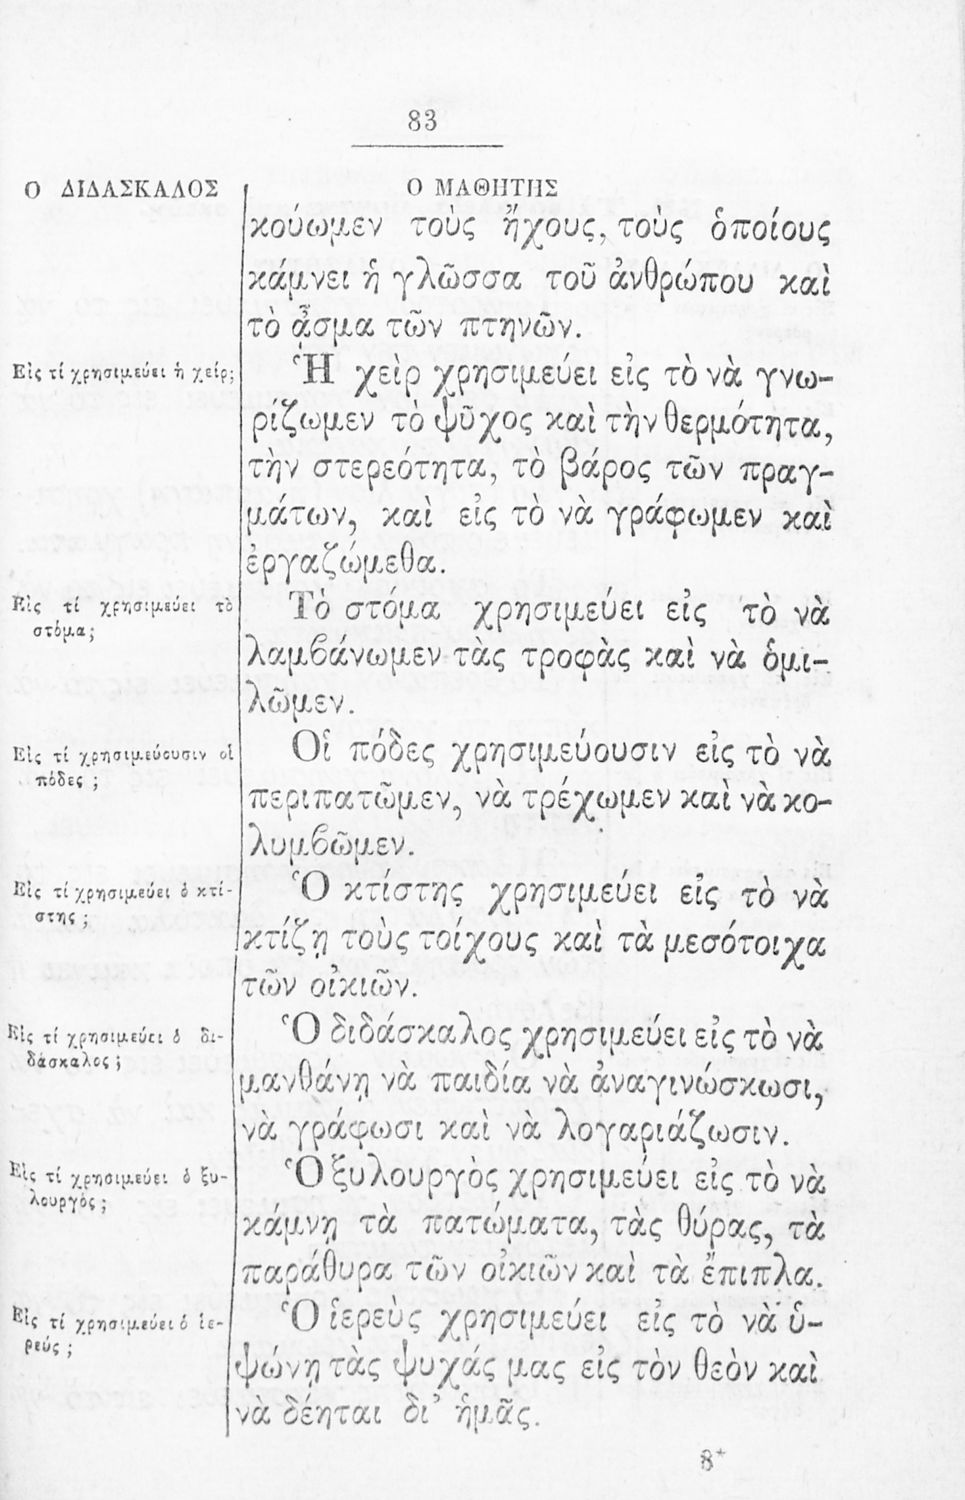 83
Ο ΔΙΔΑΣΚΑΛΟΣ
Ο ΜΑΘΗΤΗΣ
κούωμεν τοὺς ἤχους, τοὺς ὁποίους
κάμνει ἡ γλῶσσα τοῦ ἀνθρώπου καὶ
τὸ ἆσμα τῶν πτηνῶν.
Εἰς τί χρησιμεύει ἡ χείρ;
Ἡ χεὶρ χρησιμεύει εἰς τὸ νὰ γνω-
ρίζωμεν τὸ ψῦχος καὶ τὴν θερμότητα,
τὴν στερεότητα, τὸ βάρος τῶν πραγ-
μάτων, καὶ εἰς τὸ νὰ γράφωμεν καὶ
ἐργαζώμεθα.
Εἰς τί χρησιμεύει τὸ
στόμα;
Τὸ στόμα χρησιμεύει εἰς τὸ νὰ
λαμβάνωμεν τὰς τροφὰς καὶ νὰ ὁμι-
λῶμεν.
Εἰς τί χρησιμεύουσιν οἱ
πόδες ;
Οἱ πόδες χρησιμεύουσιν εἰς τὸ νὰ
περιπατῶμεν, νὰ τρέχωμεν καὶ νὰ κο-
λυμβῶμεν.
Εἰς τί χρησιμεύει ὁ κτί-
στης ;
Ὁ κτίστης χρησιμεύει εἰς τὸ νὰ
κτίζῃ τοὺς τοίχους καὶ τὰ μεσότοιχα
τῶν οἰκιῶν.
Εἰς τί χρησιμεύει ὁ δι-
δάσκαλος ;
Ὁ διδάσκαλος χρησιμεύει εἰς τὸ νὰ
μανθάνῃ νὰ παιδία νὰ ἀναγινώσκωσι,
νὰ γράφωσι καὶ νὰ λογαριάζωσιν.
Εἰς τί χρησιμεύει ὁ ξυ-
λουργός ;
Ὁ ξυλουργὸς χρησιμεύει εἰς τὸ νὰ
κάμνῃ τὰ πατώματα, τὰς θύρας, τὰ
παράθυρα τῶν οἰκιῶν καὶ τὰ ἔπιπλα.
Εἰς τί χρησιμεύει ὁ ἱε-
ρεύς ;
Ὁ ἱερεὺς χρησιμεύει εἰς τὸ νὰ ὑ-
ψώνῃ τὰς ψυχάς μας εἰς τὸν θεὸν καὶ
νὰ δέηται δι' ἡμᾶς.
8*